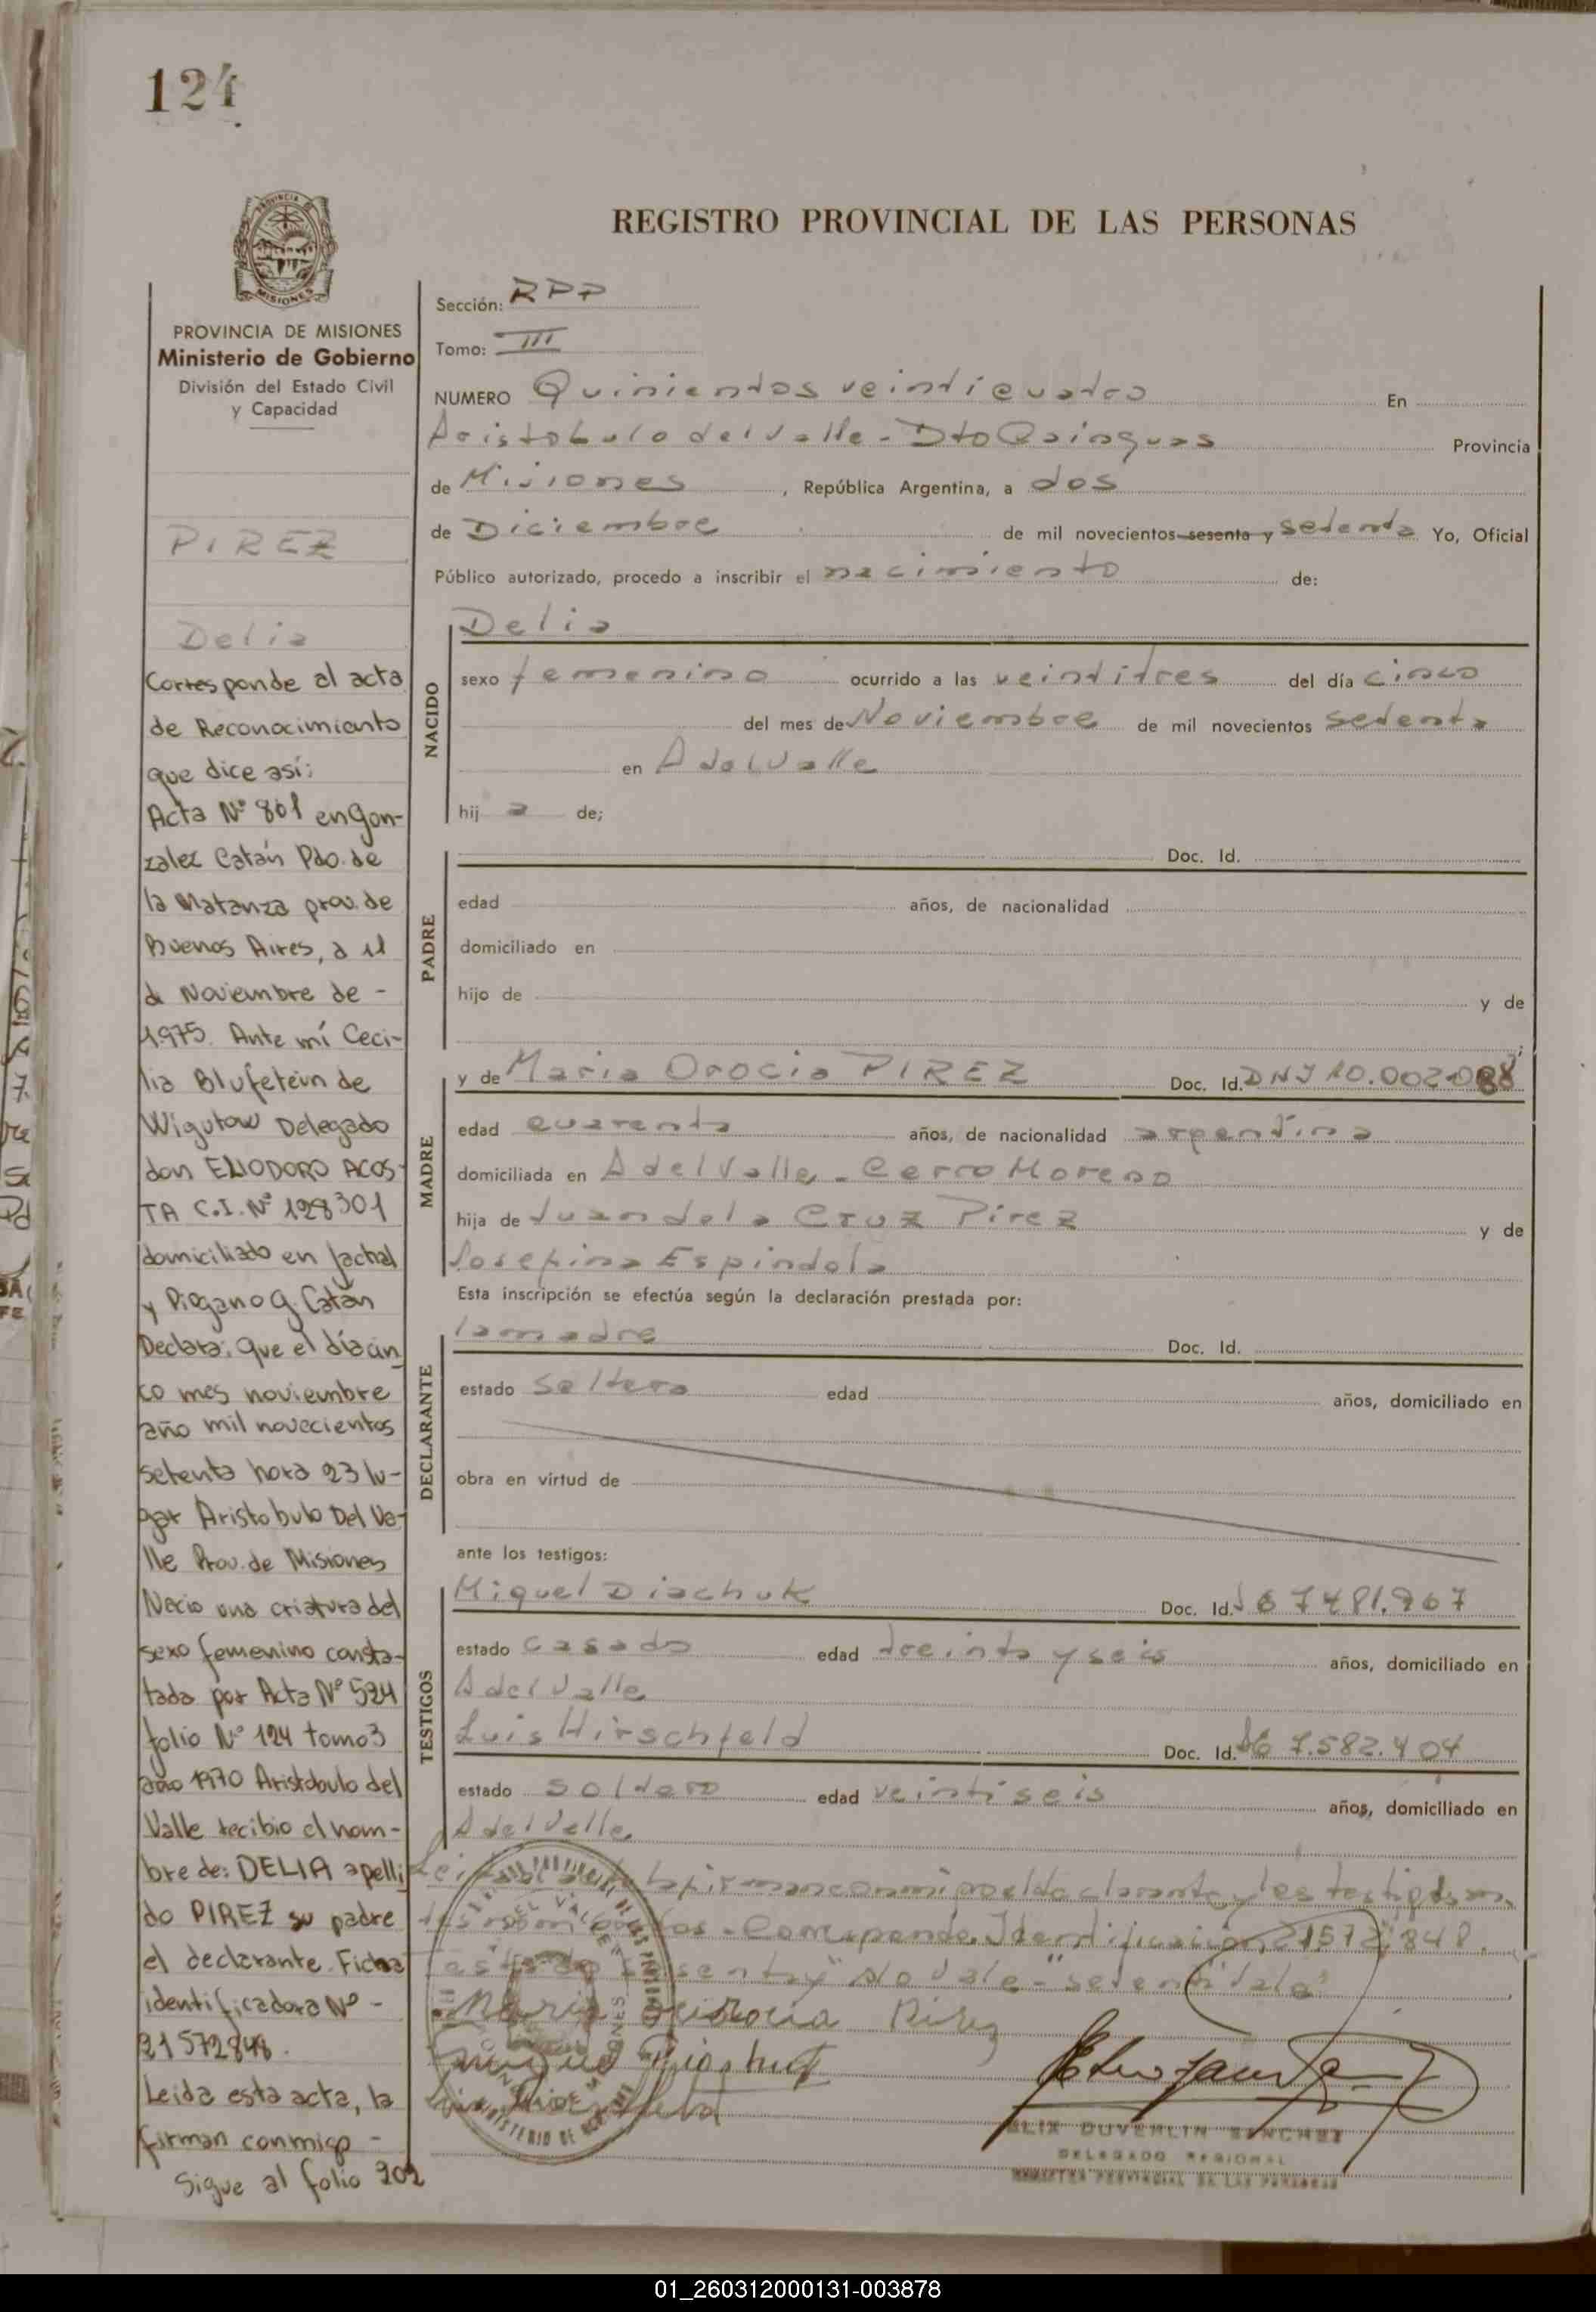 124
REGISTRO PROVINCIAL DE LAS PERSONAS
PROVINCIA DE MISIONES
Ministerio de Gobierno
División del Estado Civil
y Capacidad
PIREZ
Delia
Corresponde al acta
de Reconocimiento
que dice así:
Acta Nº 801 en Gon-
zalez Catán Pdo. de
la Matanza prov. de
Buenos Aires, a 11
de Noviembre de -
1975. Ante mí Ceci-
lia Blufetein de
Wigutow Delegado
don ELIODORO ACOS-
TA C.I. Nº 128301
domiciliado en Jachal
y Piogano G. Catán
Declara: Que el día cin
co mes noviembre
año mil novecientos
setenta hora 23 lu-
gar Aristobulo Del Va-
lle Prov. de Misiones
Nacio una criatura del
sexo femenino consta-
tada por Acta Nº 524
folio Nº 124 tomo 3
año 1970 Aristobulo del
Valle recibio el nom-
bre de: DELIA apelli
do PIREZ su padre
el declarante. Ficha
identificadora Nº -
21572848.
Leida esta acta, la
firman conmigo -
Sigue al folio 202
Sección: RPP
Tomo: III
NUMERO Quinientos veinticuatro En
Aristobulo del Valle - Dto Cainguas Provincia
de Misiones, República Argentina, a dos
de Diciembre de mil novecientos sesenta y setenta Yo, Oficial
Público autorizado, procedo a inscribir el nacimiento de:
NACIDO
Delia
sexo femenino ocurrido a las veintitres del día cinco
del mes de Noviembre de mil novecientos setenta
en A del Valle
hij a de;
PADRE
Doc. Id.
edad años, de nacionalidad
domiciliado en
hijo de y de
MADRE
y de Maria Orocia PIREZ Doc. Id. DNI 10.002.088
edad cuarenta años, de nacionalidad argentina
domiciliada en A del Valle - Cerro Moreno
hija de Juan de la Cruz Pirez y de
Josefina Espindola
Esta inscripción se efectúa según la declaración prestada por:
DECLARANTE
la madre Doc. Id.
estado soltera edad años, domiciliado en
obra en virtud de
ante los testigos:
TESTIGOS
Miguel Diachuk Doc. Id. 7481.967
estado casado edad treinta y seis años, domiciliado en
A del Valle
Luis Hirschfeld Doc. Id. 7.582.404
estado soltero edad veintiseis años, domiciliado en
A del Valle
firman conmigo el declarante y los testigos
Corresponde Identificación 21572.848.
"No vale" - "setenta" vale
Maria Orocia Pirez
Miguel Diachuk
ELIX DUVERLIN SANCHEZ
DELEGADO REGIONAL
REGISTRO PROVINCIAL DE LAS PERSONAS
01_260312000131-003878